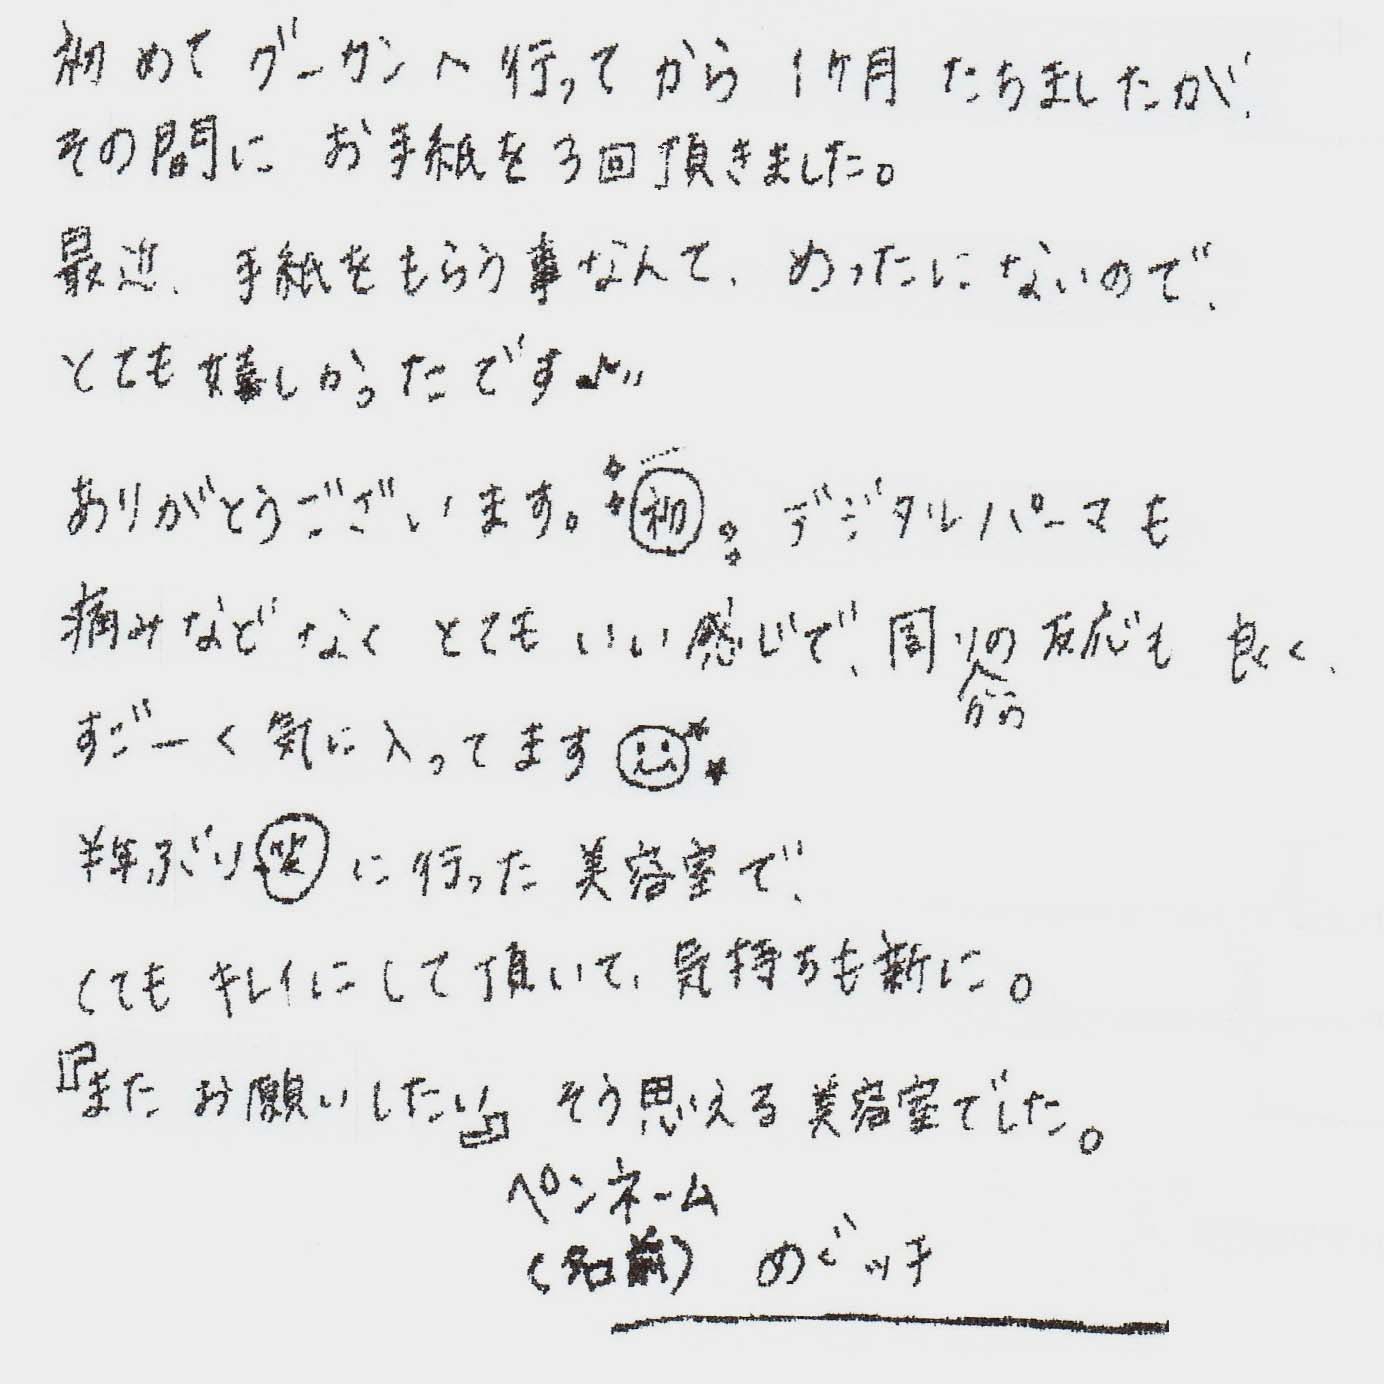 初めてグーゲンへ行ってから 1ヶ月 たちましたが、
その間に お手紙を3回頂きました。
最近、手紙をもらう事なんて、めったにないので、
とても嬉しかったです♪〃
ありがとうございます。初。デジタルパーマも
痛みなどなく とてもいい感じで、周りの反応も 良く、
からの
すごーく気に入ってます
半年ぶり笑に行った 美容室で、
とても キレイにして頂いて、気持ちも新に。
『また お願いしたい』 そう思える美容室でした。
ペンネーム
(名前) めぐッチ